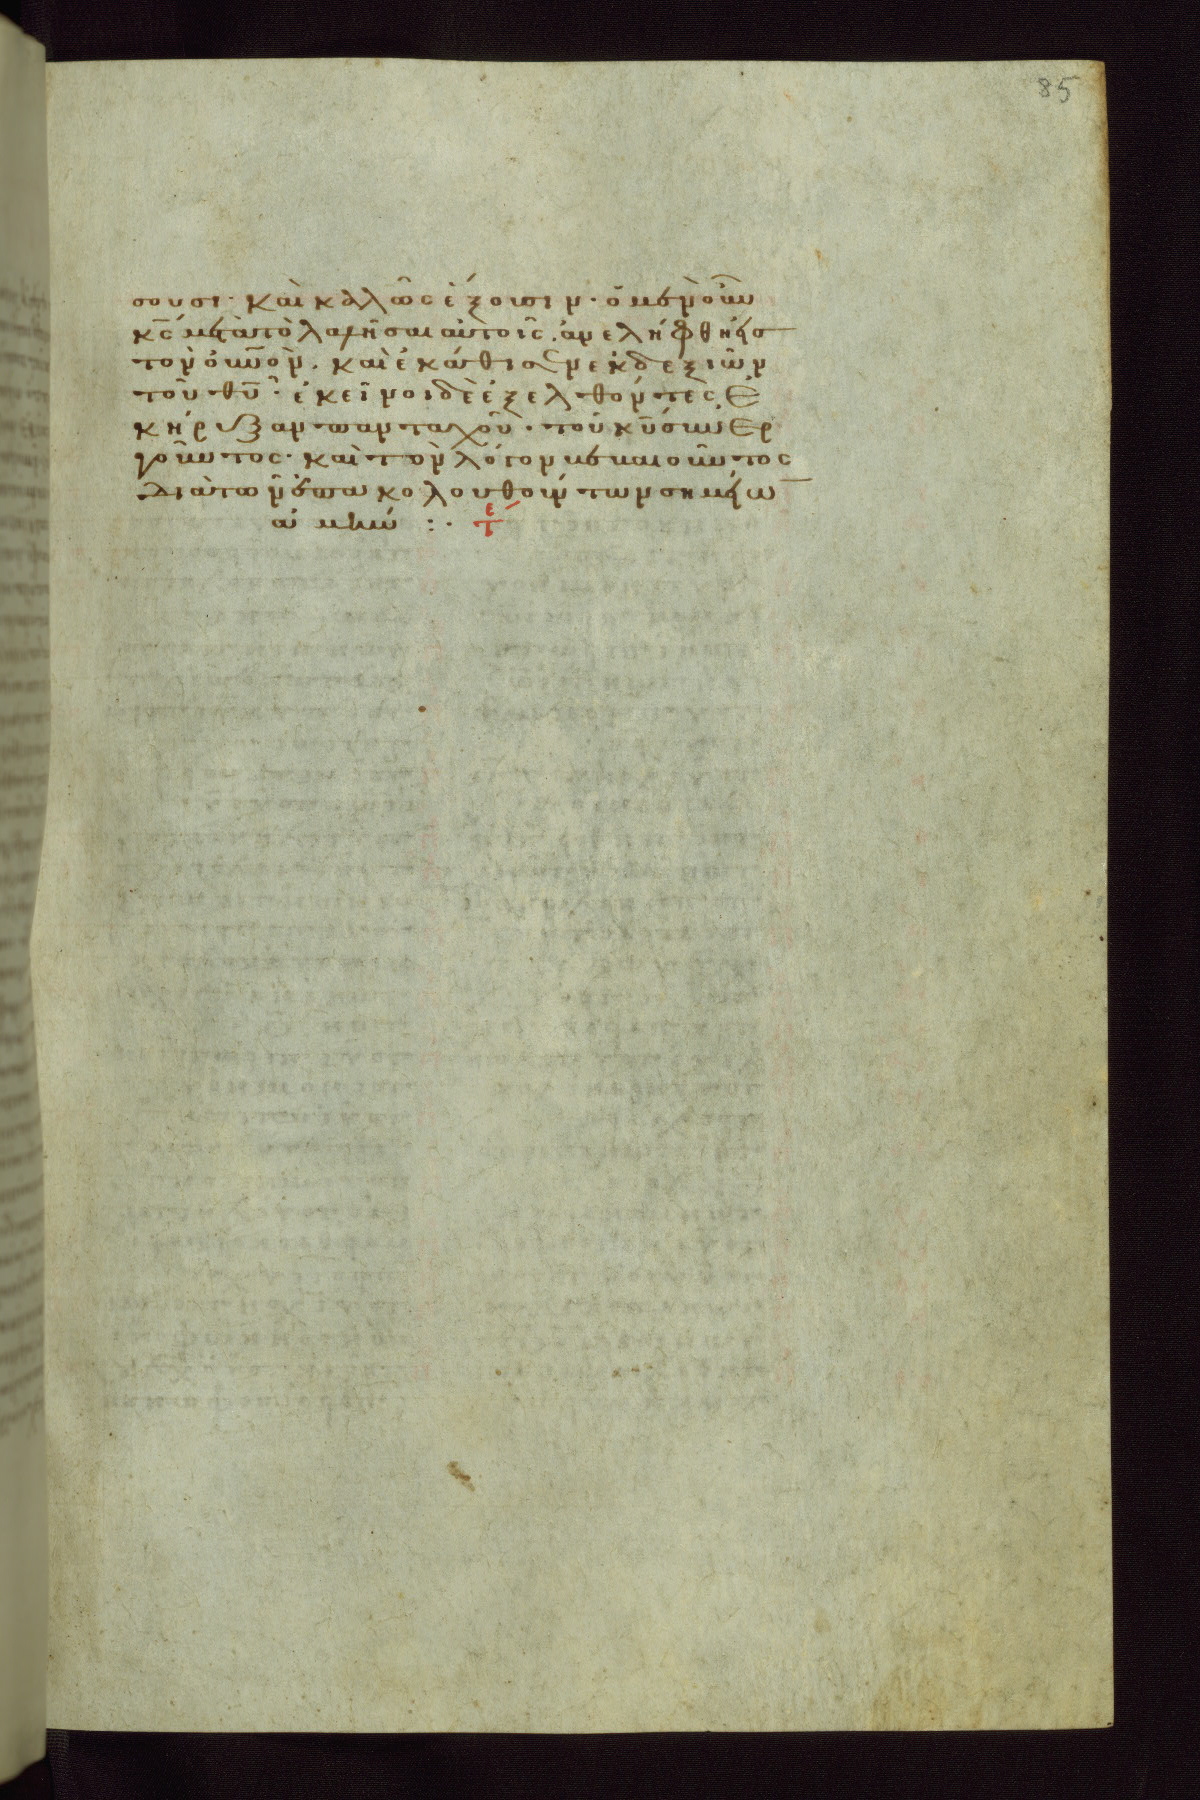 85
σουσι· καὶ καλῶς ἕξουσιν· ὁ μὲν οὖν
κς μετὰ τὸ λαλῆσαι αὐτοῖς. ἀνελήφθη εἰς
τὸν οὐνον. καὶ ἐκάθισεν ἐκ δεξιῶν
τοῦ θυ· ἐκεῖνοι δὲ ἐξελθόντες ἐ
κήρυξαν πανταχοῦ· τοῦ κυ συνερ
γοῦντος· καὶ τὸν λόγον βεβαιοῦντος
διὰ τῶν ἐπακολουθούντων σημείω
ἀμήν :· τε